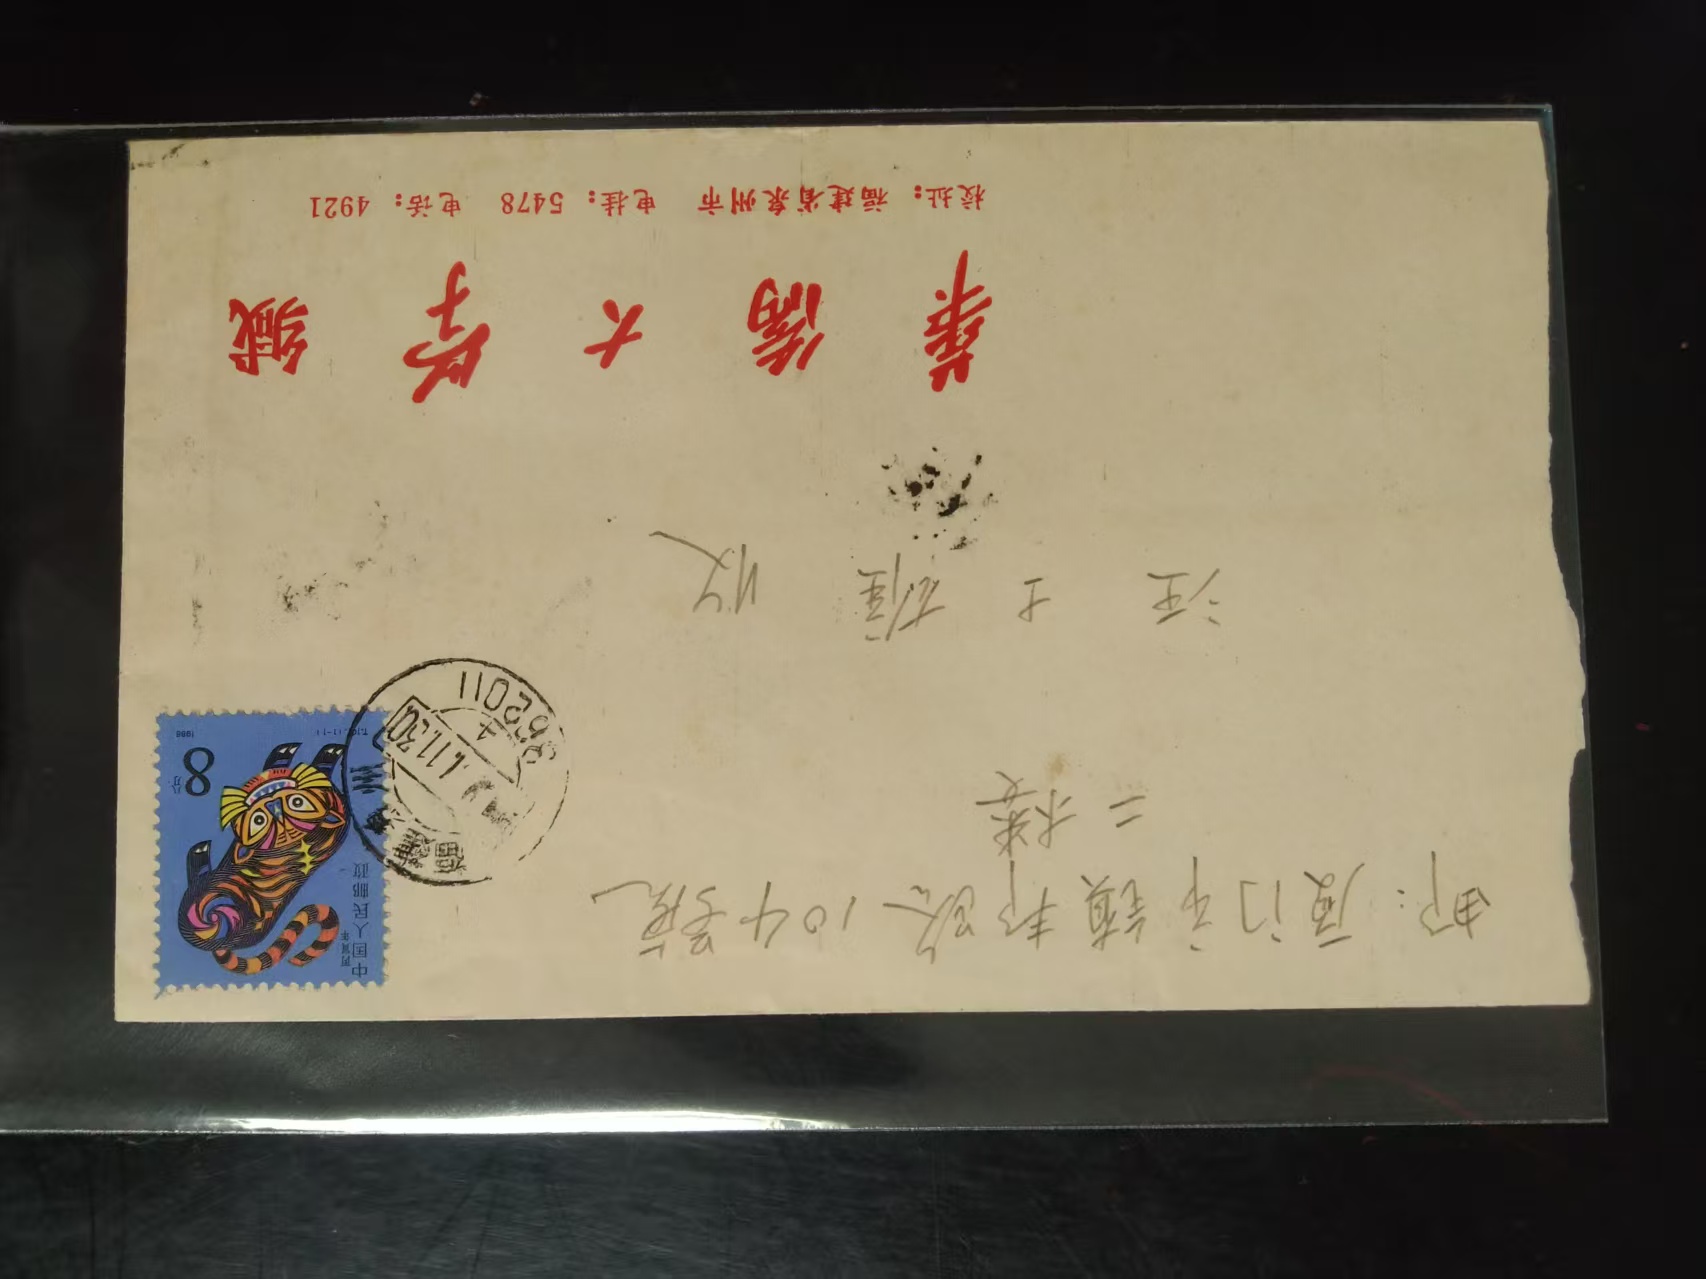 邮：厦门市镇邦路104号
二楼
汪士雄 收
华侨大学 缄
校址：福建省泉州市 电挂：5478 电话：4921
丙寅年
中国人民邮政
8
八分
T.107.(1-1)
1986
福建
362011